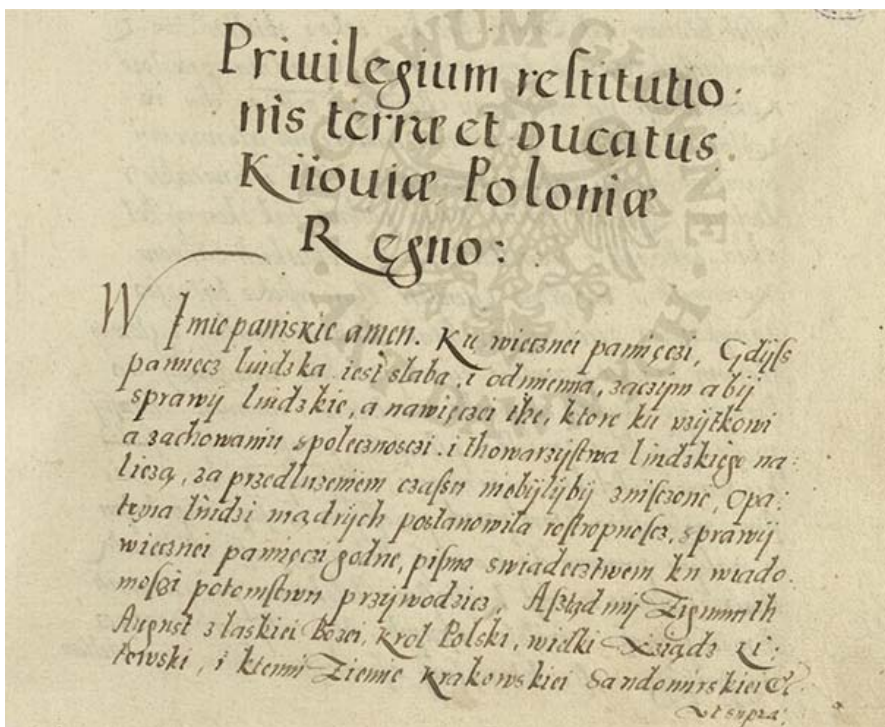 Priuilegium restitutio
nis terræ et Ducatus
Kiiouiæ Poloniæ
Regno:
W Imie paniskie amen. Ku wiecznei pamięczi, Gdÿss
pamięcz liudzka iest slaba, i odmienna, zaczÿm abÿ
sprawÿ liudzkie, a nawięczei the, ktore ku vżÿtkowi
a zachowaniu spolecznosczi i thowarzÿstwa liudzkiego na:
lieżą, za przedluzeniem czassu niebÿlÿbÿ zniszczone, Opa:
trzna liudzi mądrÿch postanowila rostropnoscz, sprawÿ
wiecznei pamięczi godne, pisma swiadecztwem ku wiado
mosczi potomstwu przÿwodzicz, Asstąd mÿ Zigmunth
August z laskiei Bozei, Krol Polski, wielki Xsiądz Li:
tewski, i ktemu Ziemie Krakowskiei Sandomirskiei &c
Vt supra: